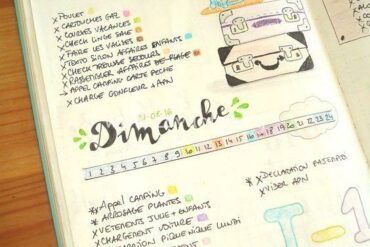 x POULET
x CARTOUCHES GAZ
x COURSES VACANCES
x CHECK LINGE SALE
x FAIRE LES VALISES
x TEXTO SIMON AFFAIRES ENFANTS
x CHECK TROUSSE SECOURS
x RASSEMBLER AFFAIRES DE PLAGE
x APPEL CAMPING CARTE PECHE
x CHARGE GONFLEUR & APN
21-08-16
Dimanche
1 2 3 4 5 6 7 8 9 10 11 12 13 14 15 16 17 18 19 20 21 22 23 24
x Appel CAMPING
x ARROSAGE PLANTES
x VETEMENTS JULIE + ENFANTS
x CHARGEMENT VOITURE
PIQUENIQUE LUNDI
* x DECLARATION PAJEMPLOI
x VIDER APN
T-1